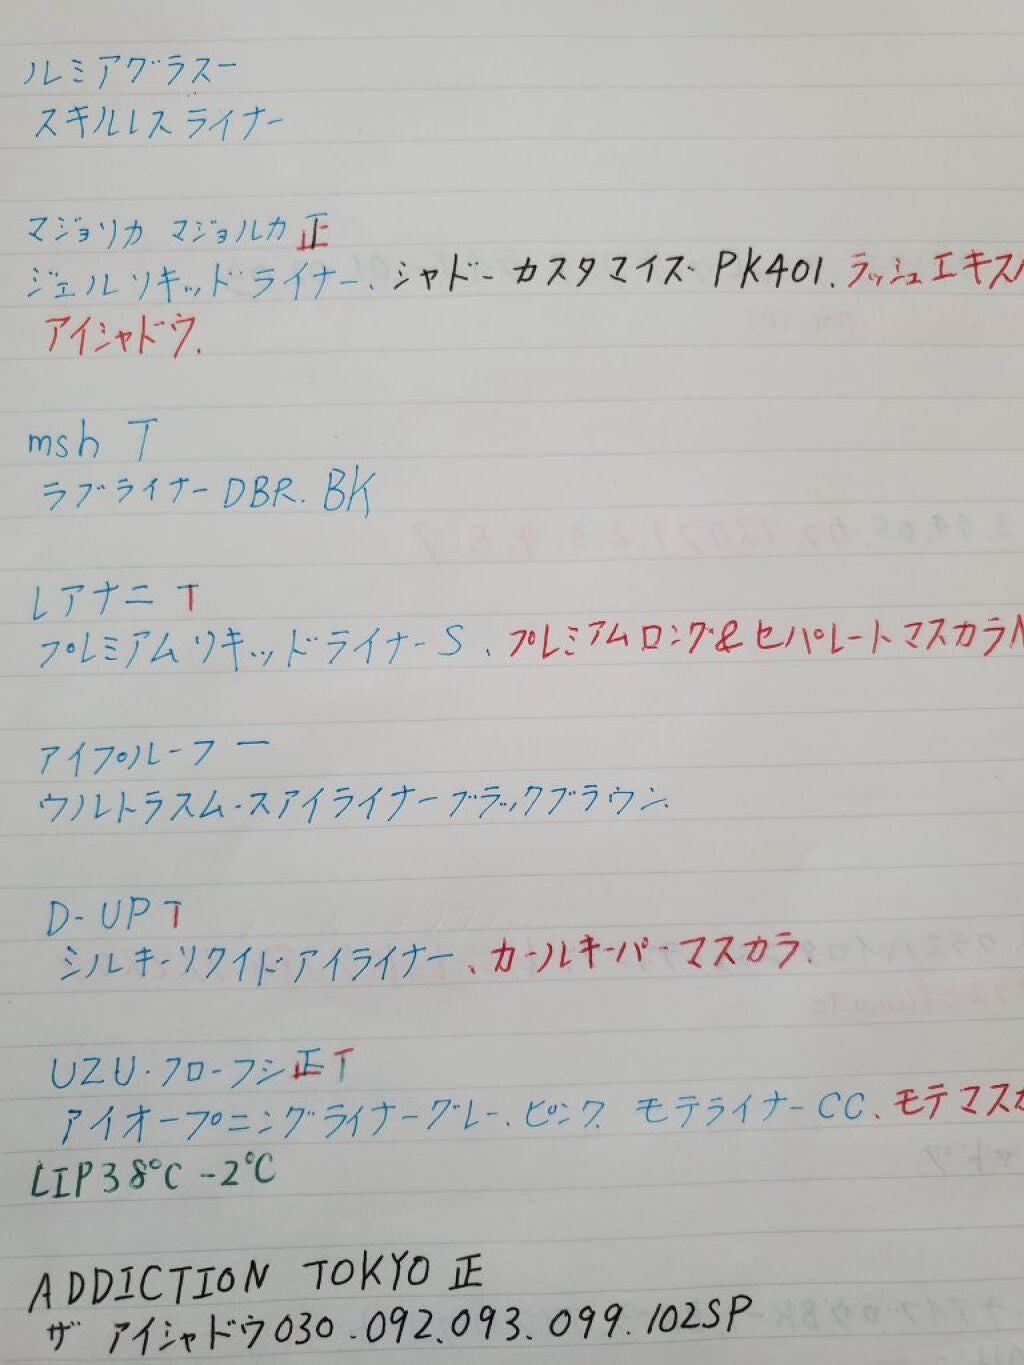 ルミアグラス一
スキルレスライナー
マジョリカ マジョルカ 正
ジェルリキッドライナー、シャドーカスタマイズ PK401、ラッシュエキス
アイシャドウ.
msh T
ラブライナー DBR. BK
レアナニ T
プレミアムリキッドライナーS、プレミアムロング&セパレートマスカラN
アイプルーフ 一
ウルトラスム・スアイライナーブラックブラウン、
D-UP T
シルキーリクイドアイライナー、カールキーパーマスカラ.
UZU・フローフシ 正T
アイオープニングライナーグレー、ピンク モテライナーCC、モテマスカ
LIP38℃ -2℃
ADDICTION TOKYO 正
ザ アイシャドウ030.092.093.099.102SP